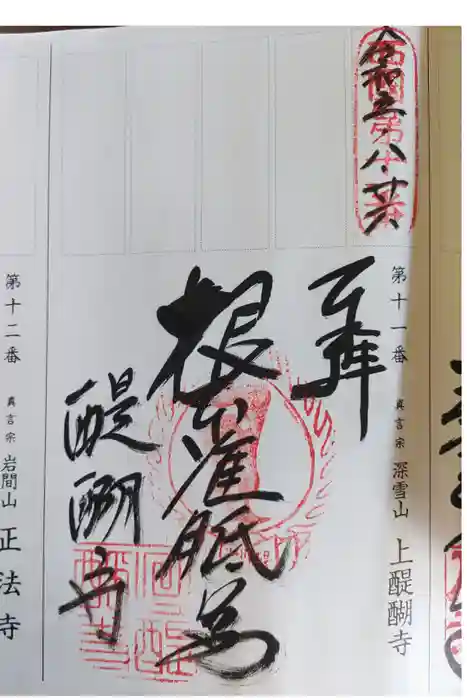 西國第十一番
令和五・八・廿六
第十一番 真言宗 深雪山 上醍醐寺
奉拝
根本准胝尊
醍醐寺
第十二番 真言宗 岩間山 正法寺